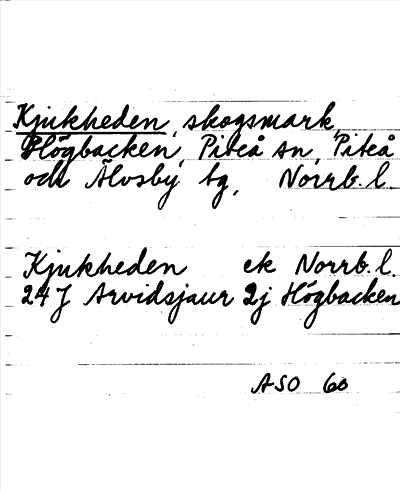 Kjukheden, skogsmark,
Högbacken, Piteå sn, Piteå
och Älvsby tg, Norrb. l.
Kjukheden ek Norrb. l.
24J Arvidsjaur 2j Högbacken
ASO 60